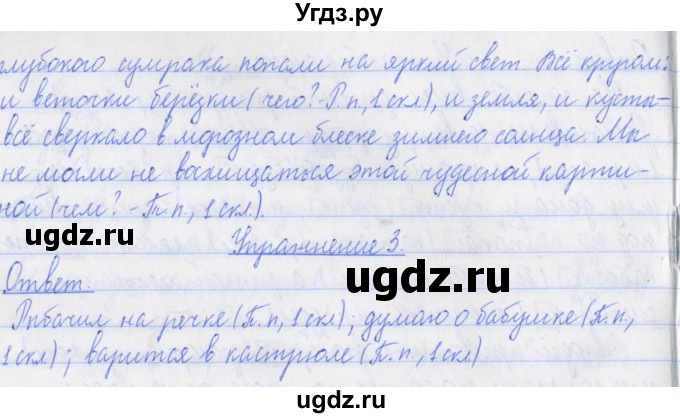 Угдз.ру
глубокого сумрака попали на яркий свет. Всё кругом:
и веточки берёзки (чего? - Р.п., 1 скл.), и земля, и кусты -
всё сверкало в морозном блеске зимнего солнца. Мы
не могли не восхищаться этой чудесной карти-
ной (чем? - Т.п., 1 скл.).
ugdz.ru
Упражнение 3.
ugdz.ru
Ответ.
Рыбачил на речке (П.п., 1 скл.); думаю о бабушке (П.п.,
1 скл.); варится в кастрюле (П.п., 1 скл)
ugdz.ru
ugdz.ru